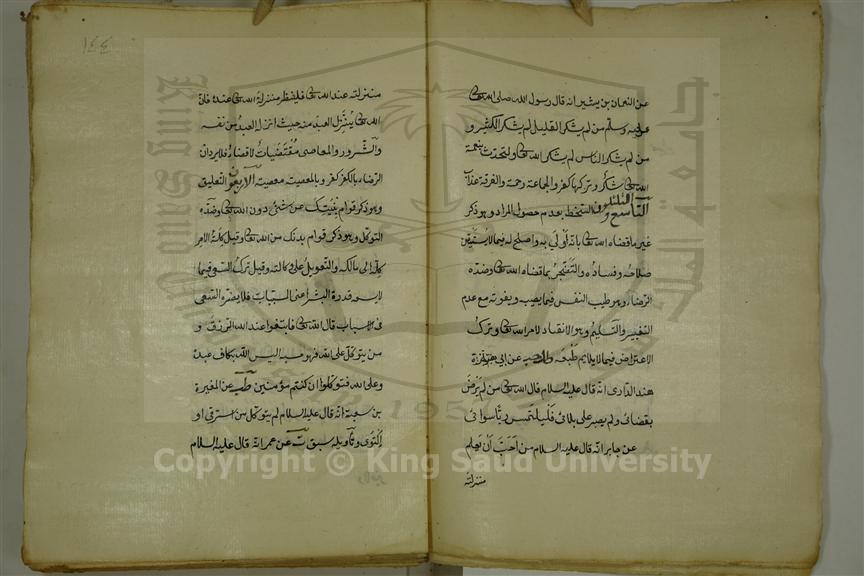 عن النعمان بن بشير انه قال رسول الله صلى الله تعالى
عليه وسلم من لم يشكر القليل لم يشكر الكثير و
من لم يشكر الناس لم يشكر الله تعالى والتحدث بنعمة
الله تعالى شكر وتركها كفر والجماعة رحمة والفرقة عذاب
التاسع والثلثون السخط بعدم حصول المراد وهو ذكر
غير ما قضاه الله تعالى بانه اولى به واصلح له فيما لا يستيقن
صلاحه وفساده والتضجر بما قضاه الله تعالى وضده
الرضاء وهو طيب النفس فيما يصيبه ويفوته مع عدم
التغيير والتسليم وهو الانقياد لامر الله تعالى وترك
الاعتراض فيما لا يلايم طبعه عن ابي هند
الداري انه قال عليه السلام قال الله تعالى من لم يرض
بقضائي ولم يصبر على بلائي فليلتمس ربا سوائي
عن جابر انه قال عليه السلام من احب ان يعلم
منزلته
١٤٤
منزلته عند الله تعالى فلينظر منزلة الله تعالى عنده فان
الله تعالى ينزل العبد منه حيث انزله العبد من نفسه
والشرور والمعاصي مقتضيات لا قضاء فلا يرد ان
الرضاء بالكفر كفر وبالمعصية معصية الاربعون التعليق
وهو ذكر قوام بنيتك عن شئ دون الله تعالى وضده
التوكل وهو ذكر قوام بدنك من الله تعالى وقيل كلة الامر
كله الى مالكه والتعويل على وكالته وقيل ترك السعي فيما
لا يسعه قدرة البشر اعنى المسببات فلا يضره السعي
في الاسباب قال الله تعالى فابتغوا عند الله الرزق و
من يتوكل على الله فهو حسبه اليس الله بكاف عبده
وعلى الله فتوكلوا ان كنتم مؤمنين عن المغيرة
بن شعبة انه قال عليه السلام لم يتوكل من استرقى او
اكتوى وتأويله سبق عن عمر انه قال عليه السلام
Copyright © King Saud University
جامعة الملك سعود
King Saud University
1957